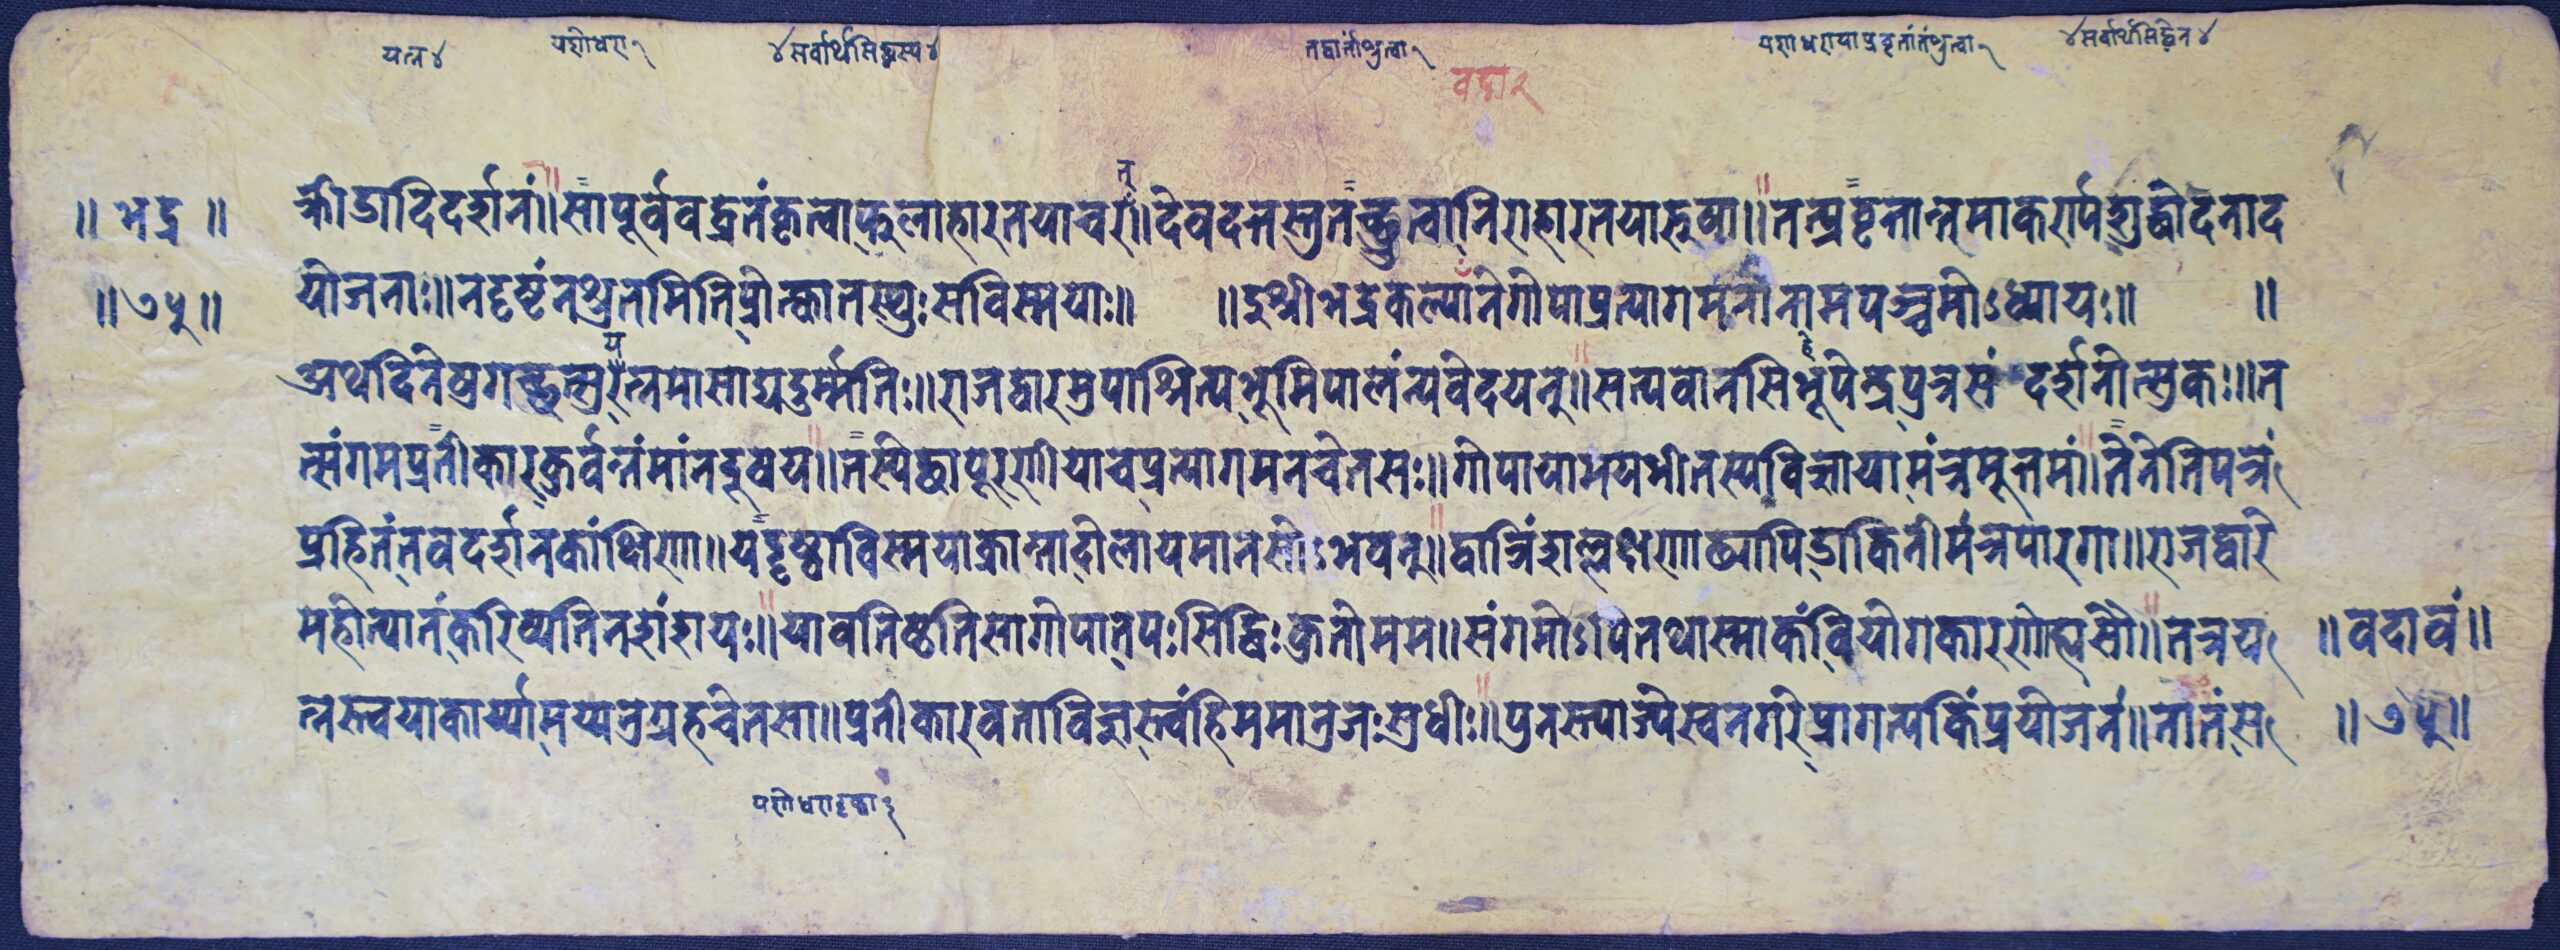 यत्न ४ यशोधरा १ ४ सर्वार्थसिद्धस्य ४ तद्वार्तांश्रुत्वा १ यशोधरायाप्रवृत्तांतंश्रुत्वा १ ४ सर्वार्थसिद्धेन ४
॥ भद्र ॥ क्रीडादिदर्शनं॥सापूर्ववद्व्रतंकृत्वाफलाहारतयाचरत्॥देवदत्तस्तुतच्छ्रुत्वानिराहारतयारुषा॥तत्प्रवृत्तान्तमाकर्ण्यशुद्धोदनाद
॥ ७५ ॥ योजनाः॥नदृष्टंनश्रुतमितिप्रोत्कातस्थुःसविस्मयाः॥ ॥इश्रीभद्रकल्पानेगोपाप्रत्यागमनोनामपञ्चमोऽध्यायः॥ ॥
अथदिनेषुगच्छत्सुरत्नमासाद्यदुर्म्मतिः॥राजद्वारमुपाश्रित्यभूमिपालंन्यवेदयत्॥सत्यवानसिभूपेन्द्रपुत्रसंदर्शनोत्सुकः॥त
त्संगमप्रतीकारकुर्वन्तंमांनदूषय॥तस्येच्छापूरणीयाचप्रत्यागमनचेतसः॥गोपायाभयभीतस्यविज्ञायामंत्रमूत्तमां॥तेनेतिपत्रं
प्रहितंतवदर्शनकांक्षिणा॥यद्दृष्ट्वाविस्मयाक्रान्तादोलायमानसोऽभवत्॥द्वात्रिंशल्लक्षणाढ्यापिडाकिनीमंत्रपारगा॥राजद्वारि
महोत्पातंकरिष्यतिनशंशयः॥यावतिष्ठतिसागोपातपःसिद्धिःकुतोमम॥संगमोऽपितथास्माकंवियोगकारणोह्यसौ॥तत्रय ॥ वदावं॥
त्नस्त्वयाकार्य्यामय्यनुग्रहचेतसा॥प्रतीकारवतोविज्ञस्त्वंहिममानुजःसुधीः॥पुनस्त्याज्येस्वनगरेप्रागत्यकिंप्रयोजनं॥नानंस ॥ ७५॥
यशोधरादृष्ट्वा ३